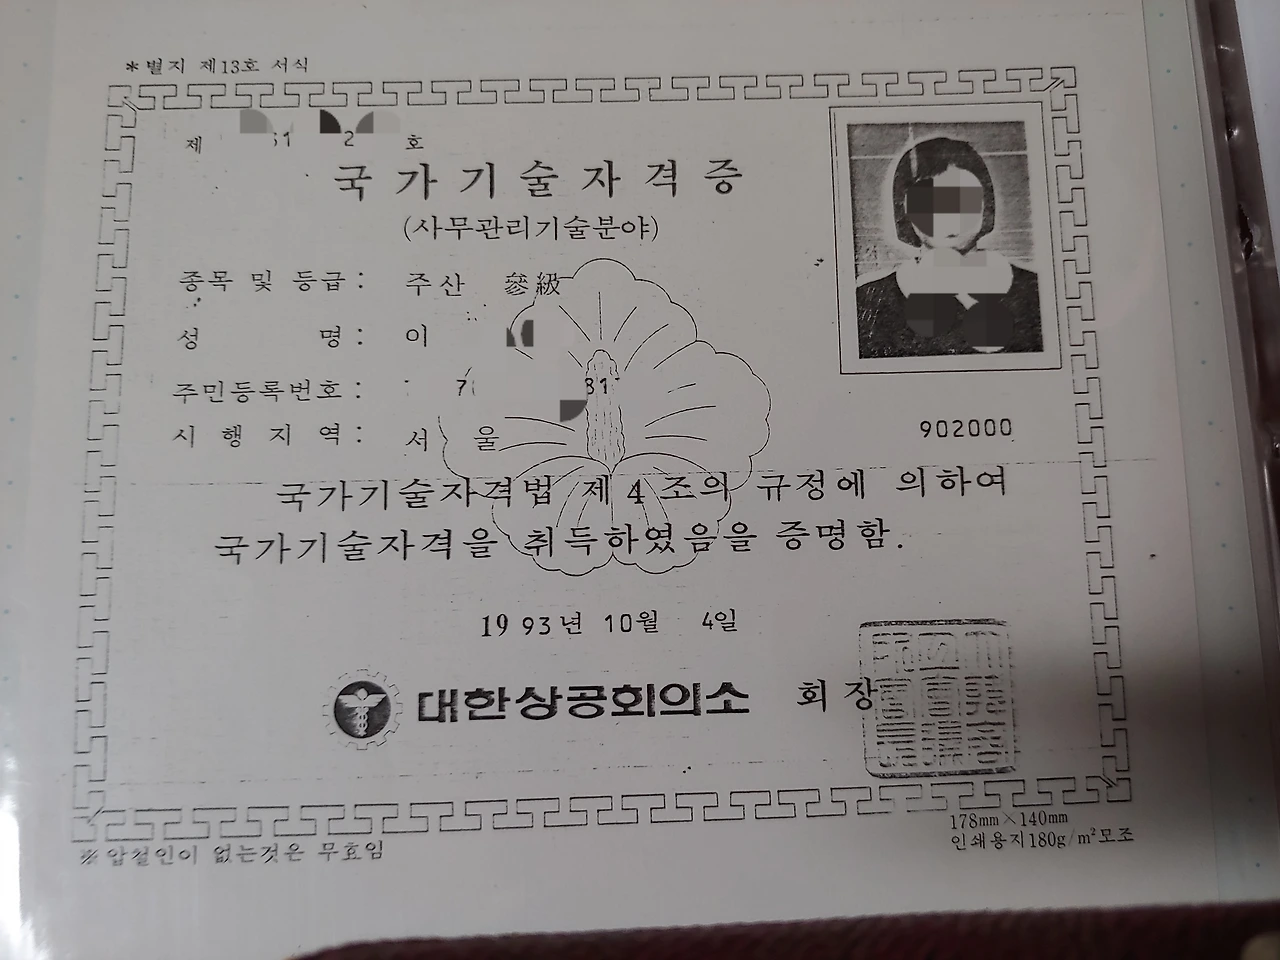 *별지 제13호 서식
제 51 2 호
국가기술자격증
(사무관리기술분야)
종목 및 등급 : 주산 參級
성 명 : 이
주민등록번호 : 7 81
시 행 지 역 : 서 울
902000
국가기술자격법 제 4 조의 규정에 의하여
국가기술자격을 취득하였음을 증명함.
19 93년 10월 4일
대한상공회의소 회 장
178mm×140mm
인쇄용지180g/m²모조
※압철인이 없는것은 무효임